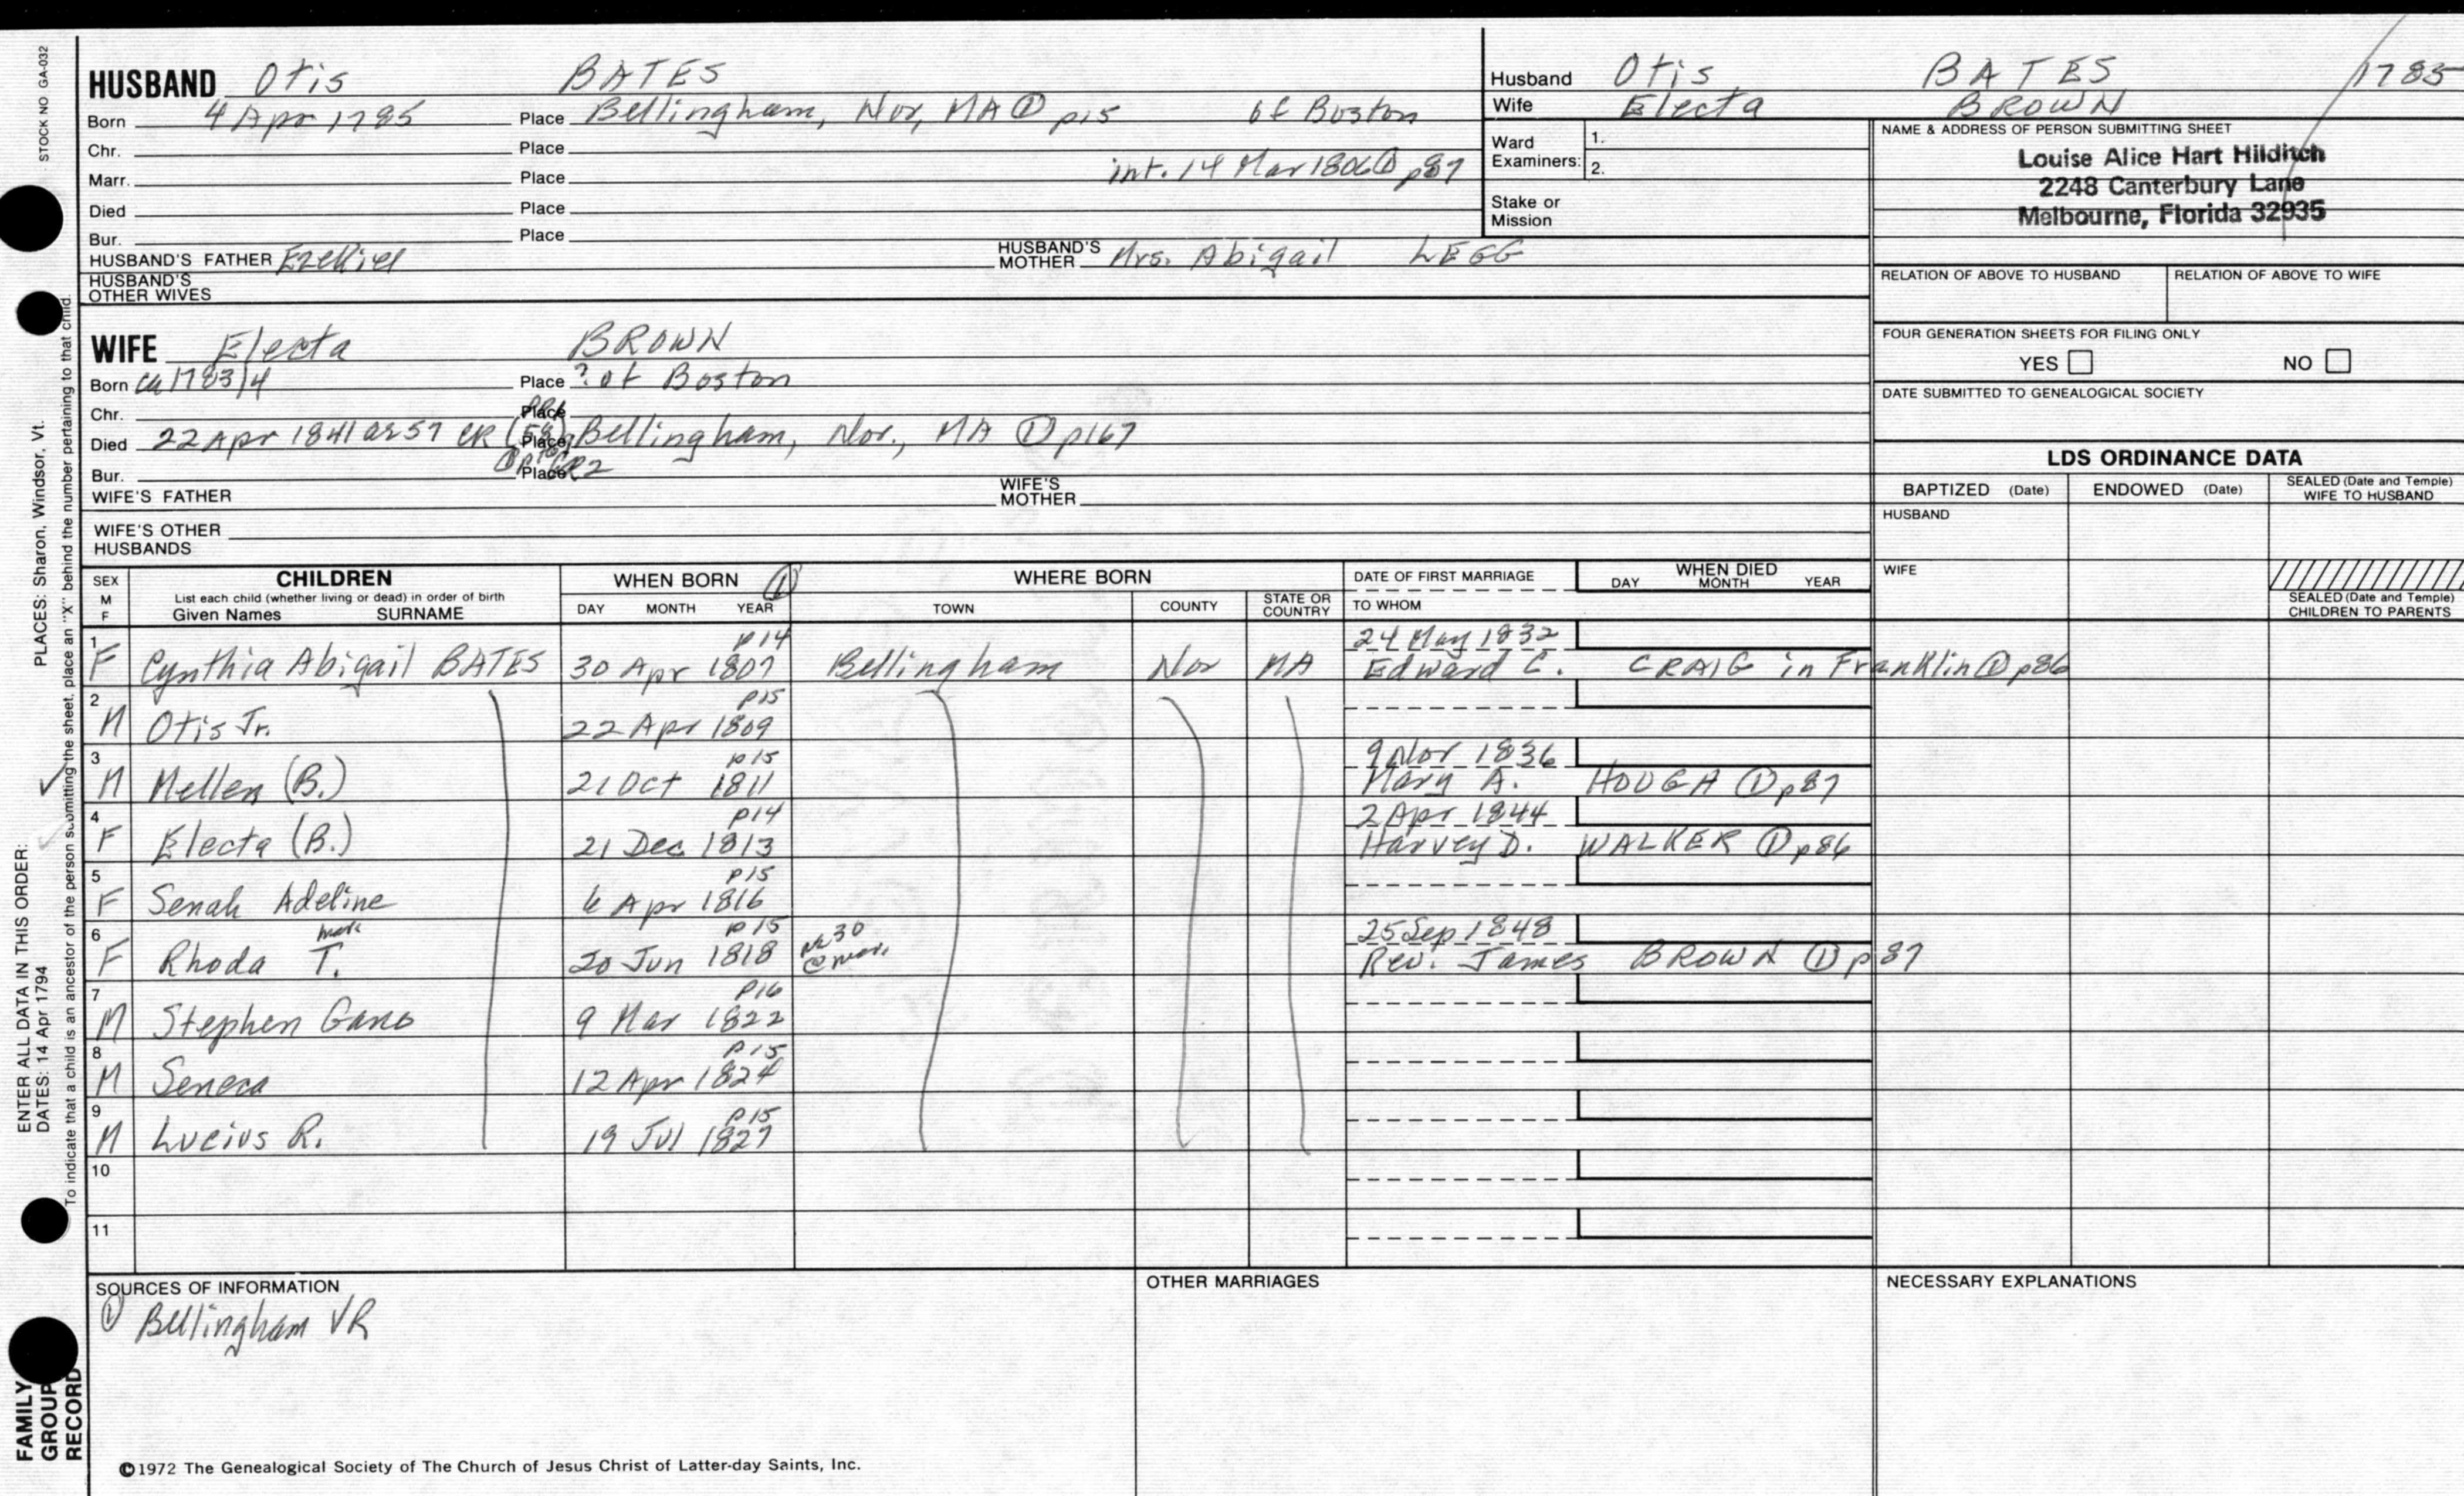 STOCK NO GA-032
HUSBAND Otis BATES
Born 4 Apr 1785 Place Bellingham, Nor, MA ① p15 of Boston
Chr. Place
Marr. Place int. 14 Mar 1806 ① p87
Died Place
Bur. Place
HUSBAND'S FATHER Ezekiel HUSBAND'S MOTHER Mrs. Abigail LEGG
HUSBAND'S OTHER WIVES
WIFE Electa BROWN
Born ca 1783/4 Place ? of Boston
Chr. Place
Died 22 Apr 1841 ae 57 CR (58 Place Bellingham, Nor., MA ① p167
Bur. Place CR2
WIFE'S FATHER WIFE'S MOTHER
WIFE'S OTHER HUSBANDS
Husband Otis BATES 1785
Wife Electa BROWN
Ward Examiners: 1. 2.
Stake or Mission
NAME & ADDRESS OF PERSON SUBMITTING SHEET
Louise Alice Hart Hilditch
2248 Canterbury Lane
Melbourne, Florida 32935
RELATION OF ABOVE TO HUSBAND RELATION OF ABOVE TO WIFE
FOUR GENERATION SHEETS FOR FILING ONLY
YES NO
DATE SUBMITTED TO GENEALOGICAL SOCIETY
LDS ORDINANCE DATA
BAPTIZED (Date) ENDOWED (Date) SEALED (Date and Temple) WIFE TO HUSBAND
HUSBAND
WIFE
SEALED (Date and Temple) CHILDREN TO PARENTS
SEX M F CHILDREN List each child (whether living or dead) in order of birth Given Names SURNAME
WHEN BORN ① DAY MONTH YEAR
WHERE BORN TOWN COUNTY STATE OR COUNTRY
DATE OF FIRST MARRIAGE TO WHOM
WHEN DIED DAY MONTH YEAR
p14 24 May 1832
1 F Cynthia Abigail BATES 30 Apr 1807 Bellingham Nor MA Edward C. CRAIG in Franklin ① p86
p15
2 M Otis Jr. 22 Apr 1809
p15 9 Nov 1836
3 M Mellen (B.) 21 Oct 1811 Mary A. HOUGH ① p87
p14 2 Apr 1844
4 F Electa (B.) 21 Dec 1813 Harvey D. WALKER ① p86
p15
5 F Senah Adeline 6 Apr 1816
p15 25 Sep 1848
6 F Rhoda T. 20 Jun 1818 30 Rev. James BROWN ① p87
p16
7 M Stephen Gano 9 Mar 1822
p15
8 M Seneca 12 Apr 1824
p15
9 M Lucius R. 19 Jul 1827
10
11
SOURCES OF INFORMATION
① Bellingham VR
OTHER MARRIAGES
NECESSARY EXPLANATIONS
©1972 The Genealogical Society of The Church of Jesus Christ of Latter-day Saints, Inc.
PLACES: Sharon, Windsor, Vt.
ENTER ALL DATA IN THIS ORDER:
DATES: 14 Apr 1794
To indicate that a child is an ancestor of the person submitting the sheet, place an "X" behind the number pertaining to that child.
FAMILY GROUP RECORD